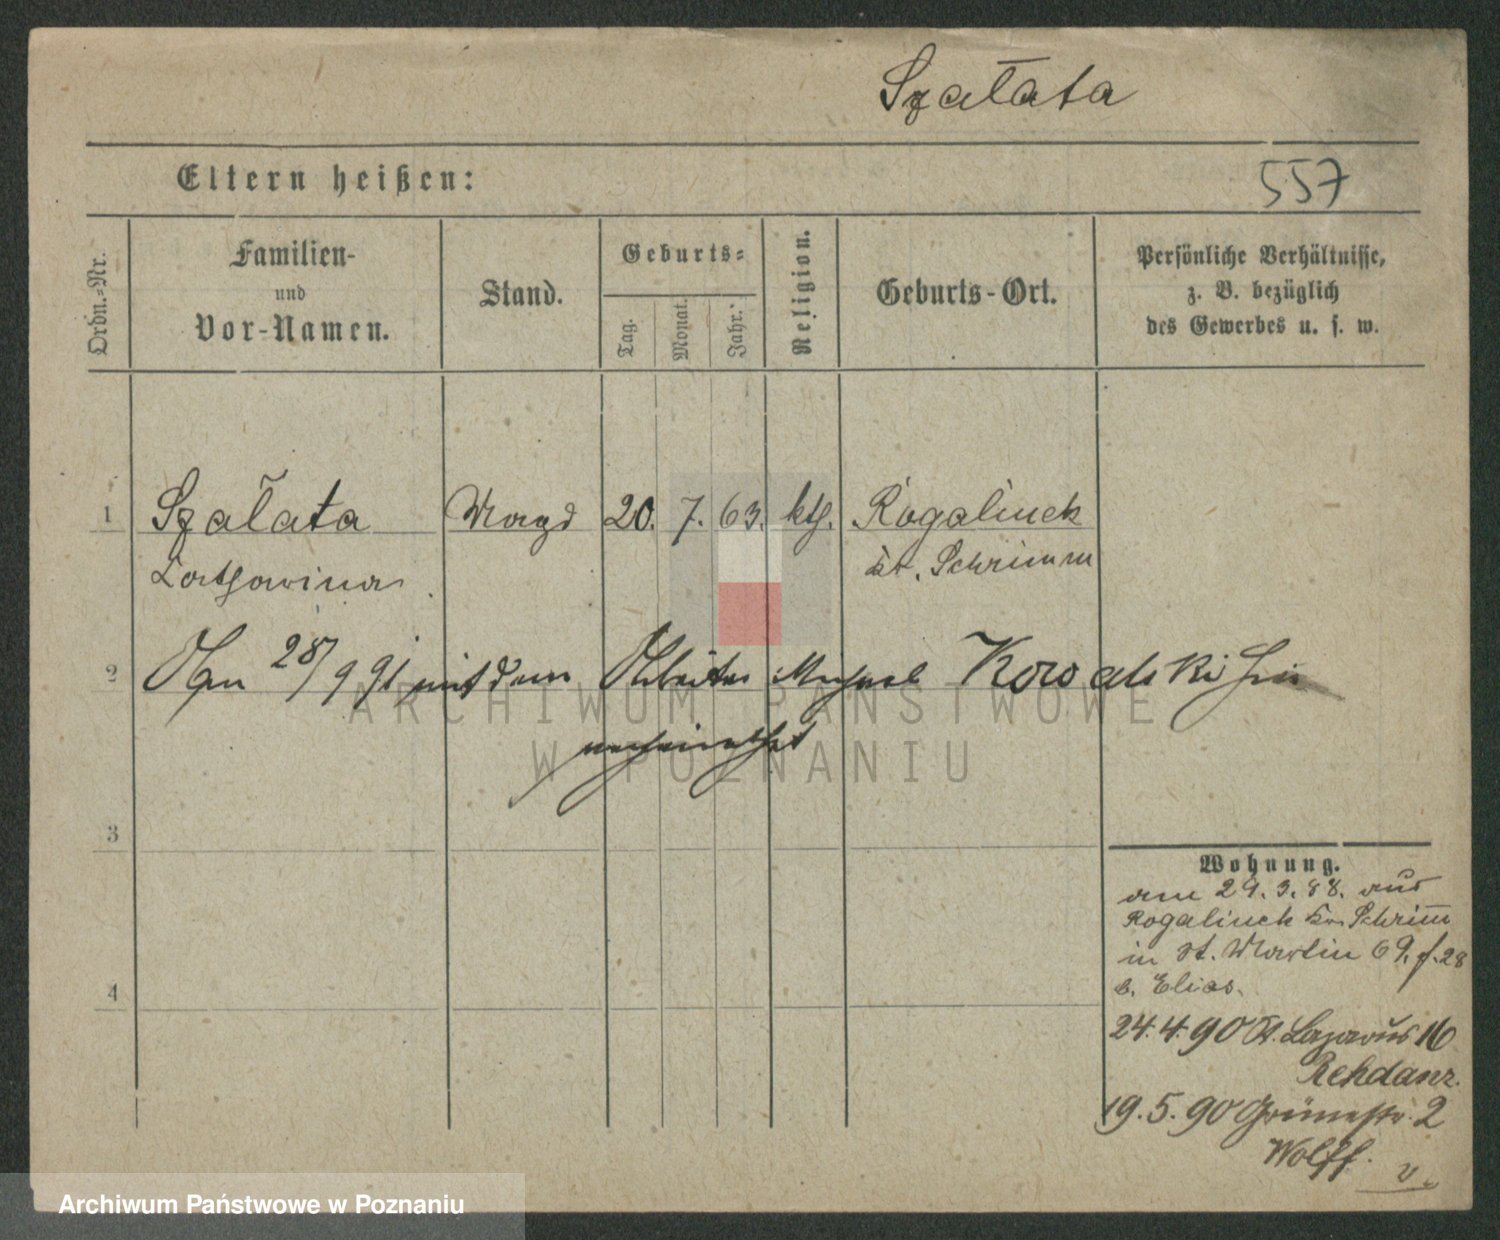 Szałata
Eltern heißen:
557
Ordn.-Nr.
Familien-
und
Vor-Namen.
Stand.
Geburts-
Tag.
Monat.
Jahr.
Religion.
Geburts-Ort.
Persönliche Verhältnisse,
z. B. bezüglich
des Gewerbes u. s. w.
1 Szałata Magd 20. 7. 63. kth. Rogalinek
Katharina Kr. Schrimm
2 Am 28/9 91 mit dem Arbeiter Michael Kowalski hier
verheirathet
ARCHIWUM PAŃSTWOWE
W POZNANIU
3
4
Wohnung.
am 29.3.88. aus
Rogalinek Kr. Schrimm
in St. Martin 69. f. 28
b. Elias.
24.4.90 St. Lazarus 16
Rehdanz.
19.5.90 Grünestr. 2
Wolff.
v.
Archiwum Państwowe w Poznaniu